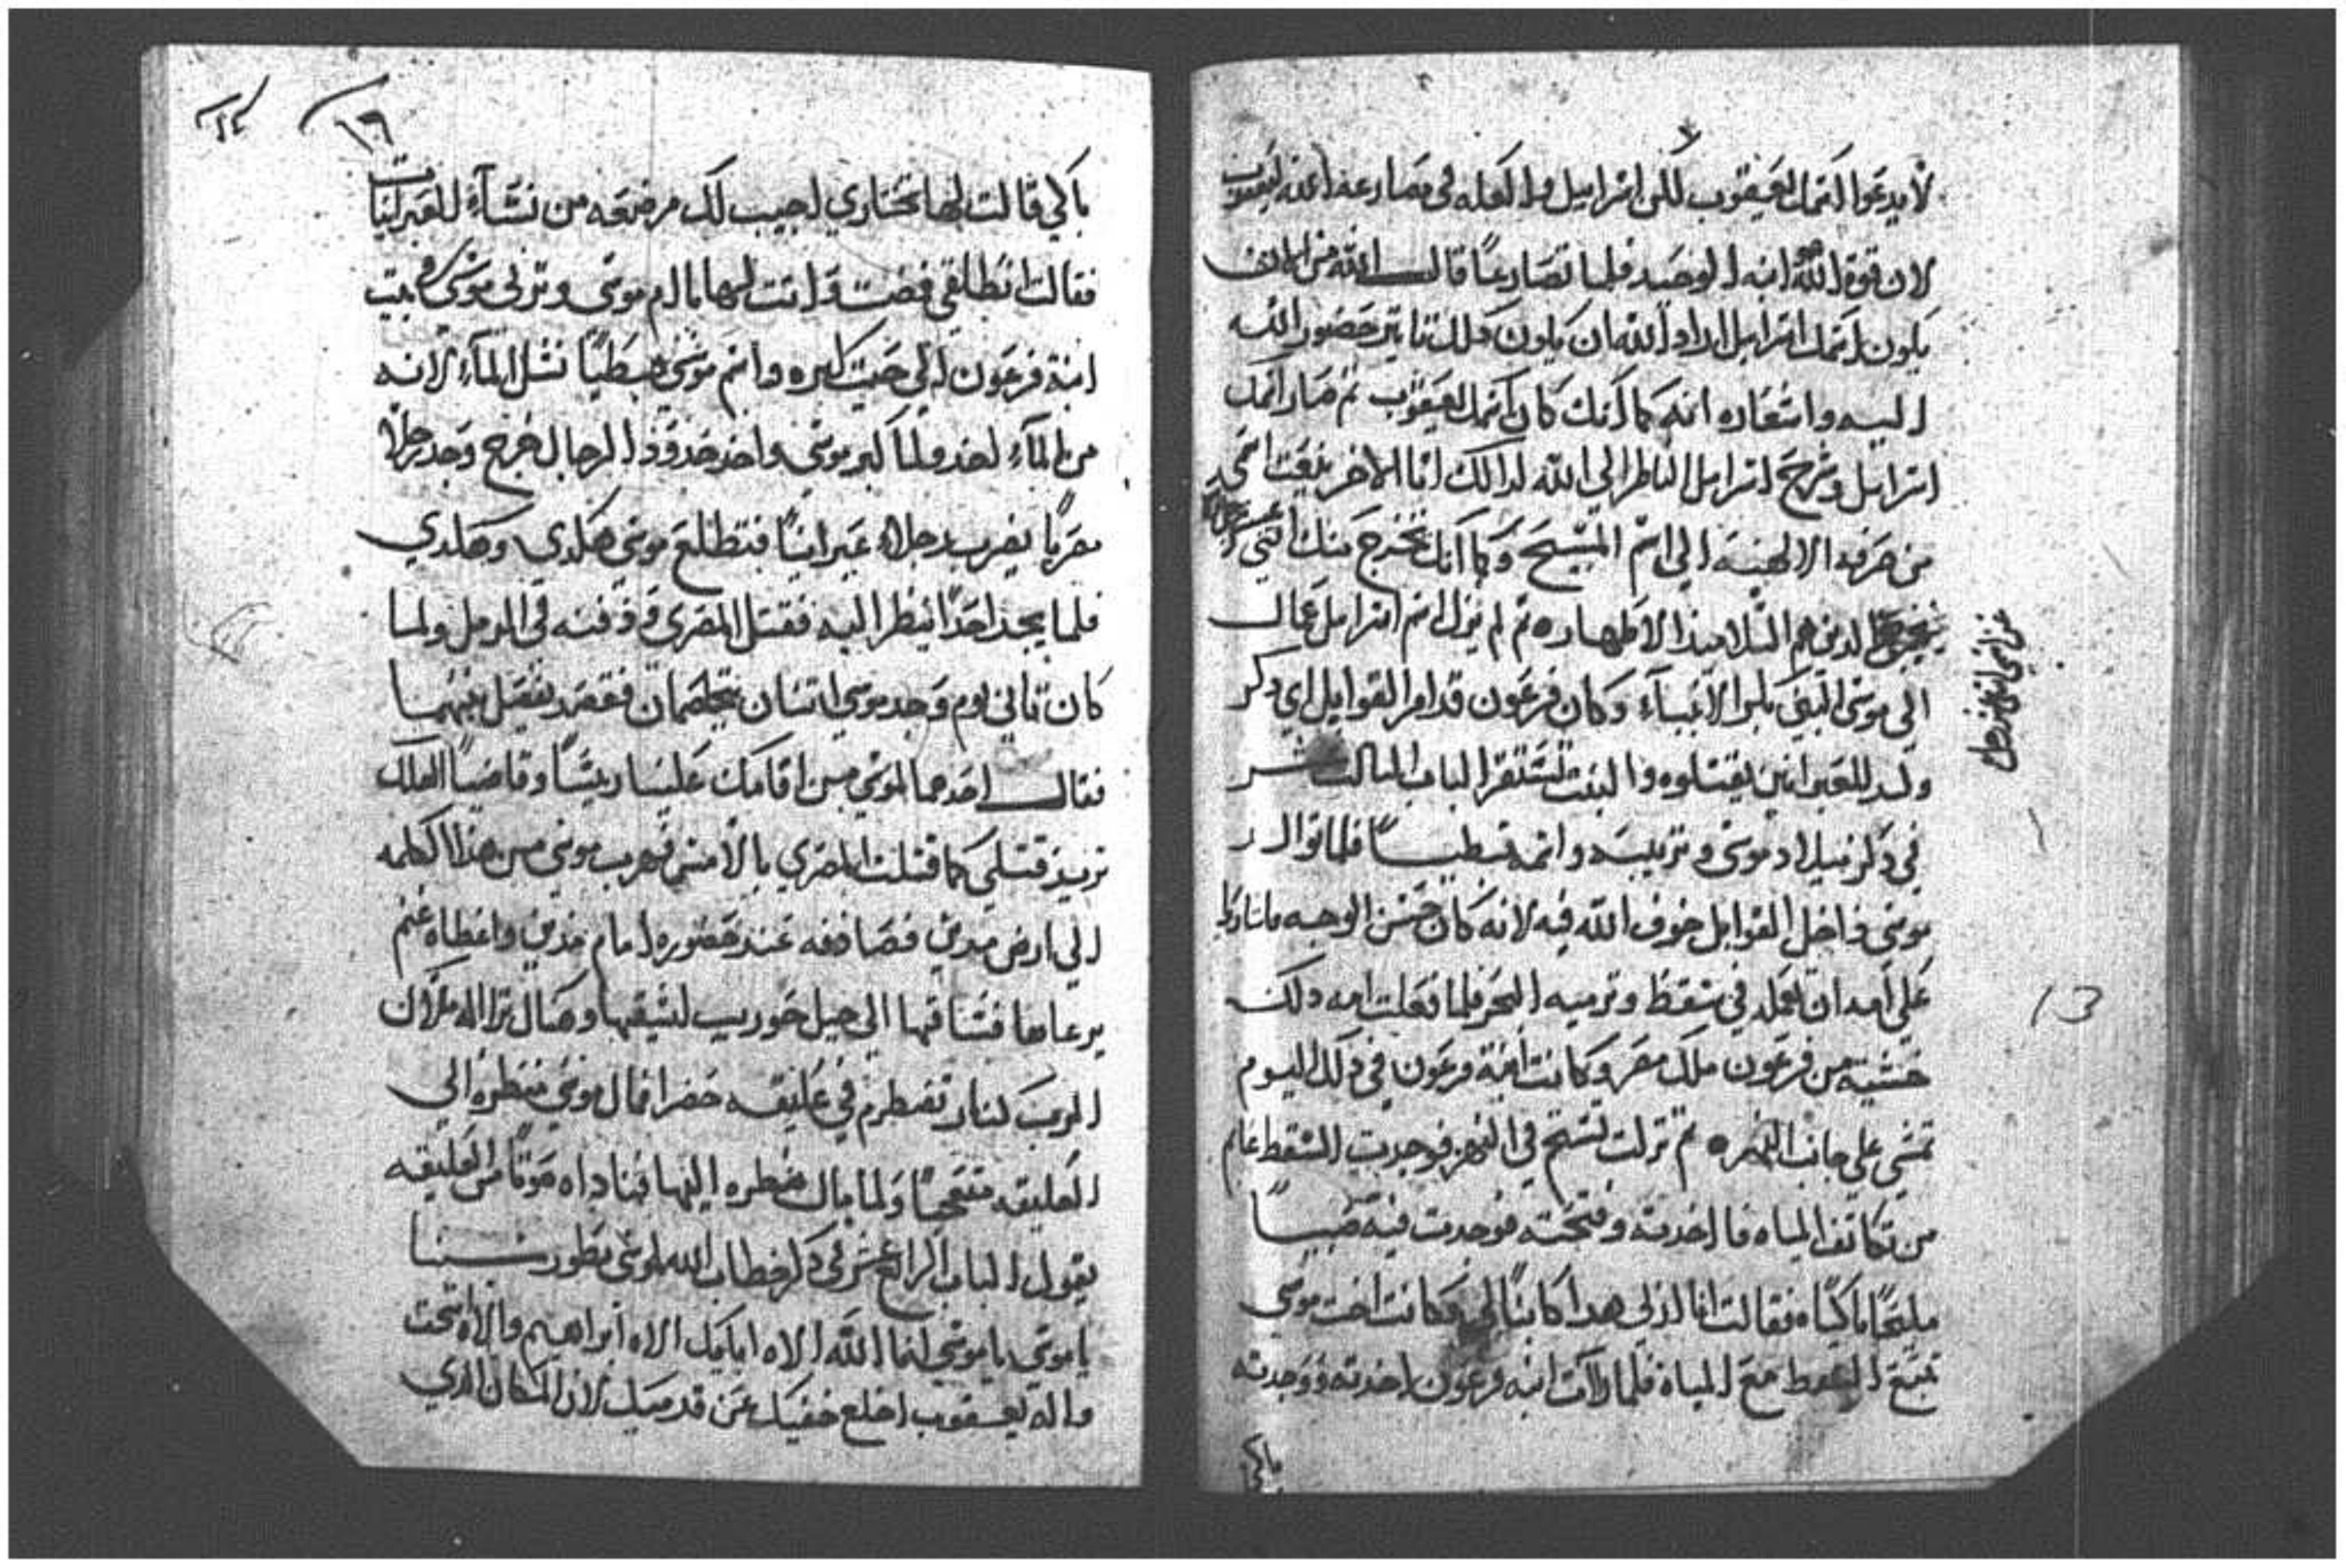 لا يدعوا اسمك يعقوب لكن اسراييل والعله في مصارعة الله ليعقوب
لان قوة الله ابنه الوحيد فلما تصارعا قال الله من الان
يكون اسمك اسراييل اراد الله ان يكون دلك تاتير حضور الله
اليه واشعاره انه كما انك كان اسمك يعقوب تم صار اسمك
اسراييل وشرح اسراييل الناظر الي الله لدالك انا الاخر
من الالهية الي اسم المسيح وكما انك تخرج منك اتني عشر
الدين هم التلاميد الاطهاره تم لم يزل اسم اسراييل عمال
الي موسى النبي الانبياء وكان فرعون قد امر القوابل اي دكر
ولد للعبرانين يقتلوه والبنت الباب التالت عشر
في دكر ميلاد موسى وتربيته واسمه قبطيا فلما توالد
موسى داخل القوابل خوف الله فيه لانه كان حسن الوجه
علي امه ان تعمله في سقط وترميه البحر فلما فعلت امه دلك
خشية من فرعون ملك مصر وكانت ابنة فرعون في دلك اليوم
تمشي علي جانب النهره تم نزلت تسبح في النهر فوجدت السقط عايم
من تكاتف المياه فااخدته وفتحته فوجدت فيه صبيا
مليحا باكيا فقالت هدا كابنا لي وكانت اخت موسى
تتبع السقط مع المياه فلما راات ابنة فرعون اخدته ووجدته
باكي
13
١٦
باكي قالت لها تختاري اجيب لك مرضعه من نساء العبرانيات
فقالت انطلقي فمضت واتت لها باام موسى وتربى موسى في بيت
ابنة فرعون الي حيت كبره واسم موسى قبطيا نشل الماء لانه
من الماء اخد ولما كبر موسى واخد حدود الرجال خرج وجد رجلا
مصريا يضرب رجلا عبرانيا فتطلع موسى هكدي وهكدي
فلما يجد احدا ينظر اليه فقتل المصري ودفنه في الرمل ولما
كان تاني يوم وجد موسى اتنان يتخاصمان فقصد يفصل بينهما
فقال احدهما لموسى من اقامك علينا ريسا وقاضيا لعلك
تريد قتلي كما قتلت المصري بالامس فهرب موسى من هدا الكلمه
الي ارض مدين فصادفه عند حضوره امام مدين واعطاه غنم
يرعاها فساقها الي جبل حوريب لسيقها
الرب لنار تضطرم في عليقه خضرا فمال موسى منظره الي
العليقه متعجبا ولما مال منظره اليها فناداه صوتا من العليقه
يقول الباب الرابع عشر في دكر خطاب الله لموسى بطور سينا
ياموسى ياموسى انا الله الاه ابايك الاه ابراهيم والاه اسحق
واله يعقوب اخلع خفيك عن قدميك لان المكان الدي